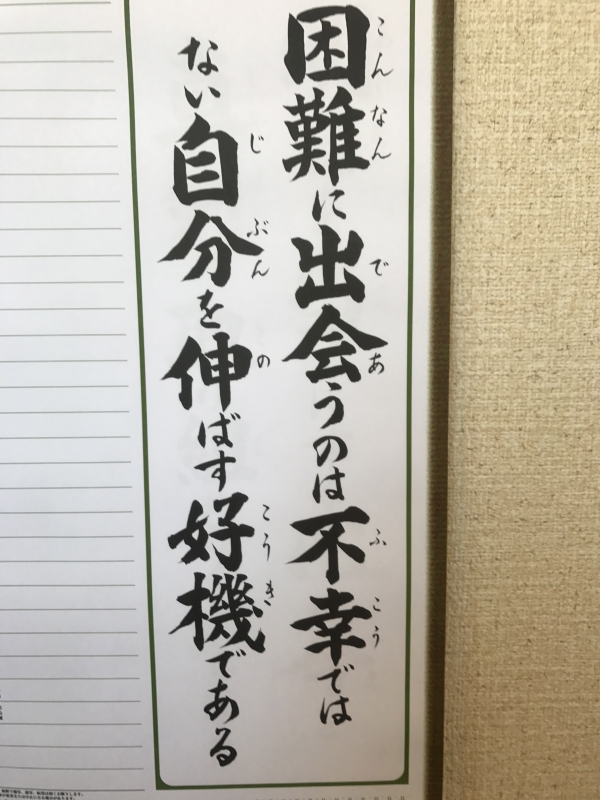 困難に出会うのは不幸では
こんなん
で
あ
ふこう
ない自分を伸ばす好機である
じぶん
の
こうき